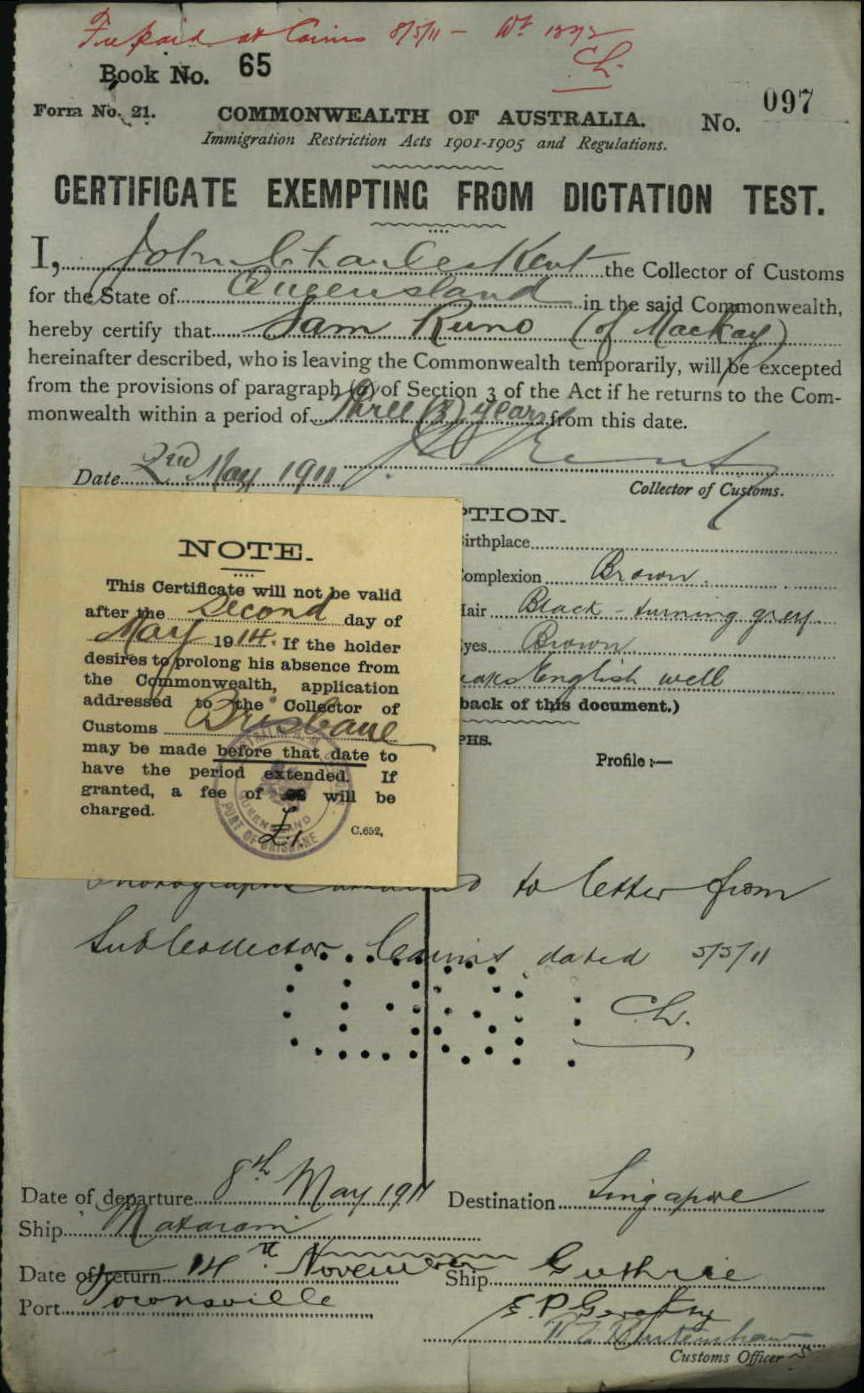 Fee paid at Cairns 8/5/11 -
C.L.
Book No. 65
Form No. 21. COMMONWEALTH OF AUSTRALIA. No. 097
Immigration Restriction Acts 1901-1905 and Regulations.
CERTIFICATE EXEMPTING FROM DICTATION TEST.
I, John Charles Kent the Collector of Customs
for the State of Queensland in the said Commonwealth,
hereby certify that Sam Runo (of Mackay)
hereinafter described, who is leaving the Commonwealth temporarily, will be excepted
from the provisions of paragraph (a) of Section 3 of the Act if he returns to the Com-
monwealth within a period of three (3) years from this date.
J C Kent
Date 2nd May 1911
Collector of Customs.
NOTE.
This Certificate will not be valid
after the second day of
May 1914. If the holder
desires to prolong his absence from
the Commonwealth, application
addressed to the Collector of
Customs Brisbane
may be made before that date to
have the period extended. If
granted, a fee of £1 will be
charged.
C.652,
PORT OF BRISBANE
QUEENSLAND
PTION.
irthplace
omplexion Brown.
air Black - turning grey
yes Brown
aks English well
back of this document.)
PHS.
Profile :—
Photographs attached to letter from
Sub Collector Cairns dated 5/5/11
C.L.
Date of departure 8th May 1911 Destination Singapore
Ship Mataram
Date of return 14th November Ship Guthrie
Port Townsville
E. P. Geraghty
Customs Officer